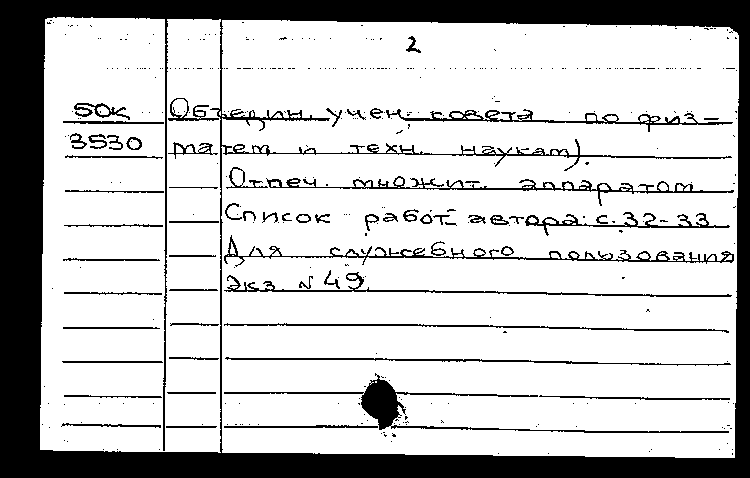 2
50к Объедин. учен. совета по физ-
3530 матем. и техн. наукам).
Отпеч. множит. аппаратом.
Список работ автора: с. 32-33.
Для служебного пользования
Экз. № 49.